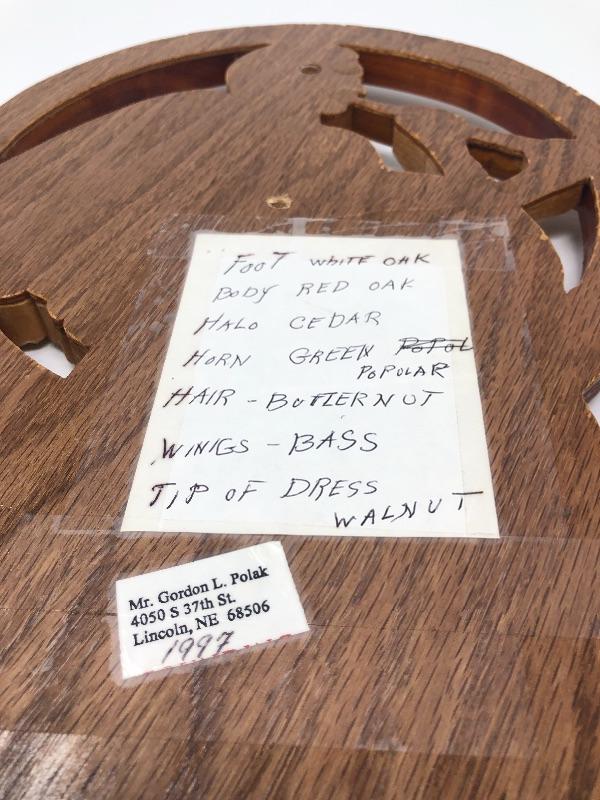 FOOT WHITE OAK
BODY RED OAK
HALO CEDAR
HORN GREEN POPOL
POPULAR
HAIR - BUTTERNUT
WINIGS - BASS
TIP OF DRESS
WALNUT
Mr. Gordon L. Polak
4050 S 37th St.
Lincoln, NE 68506
1997